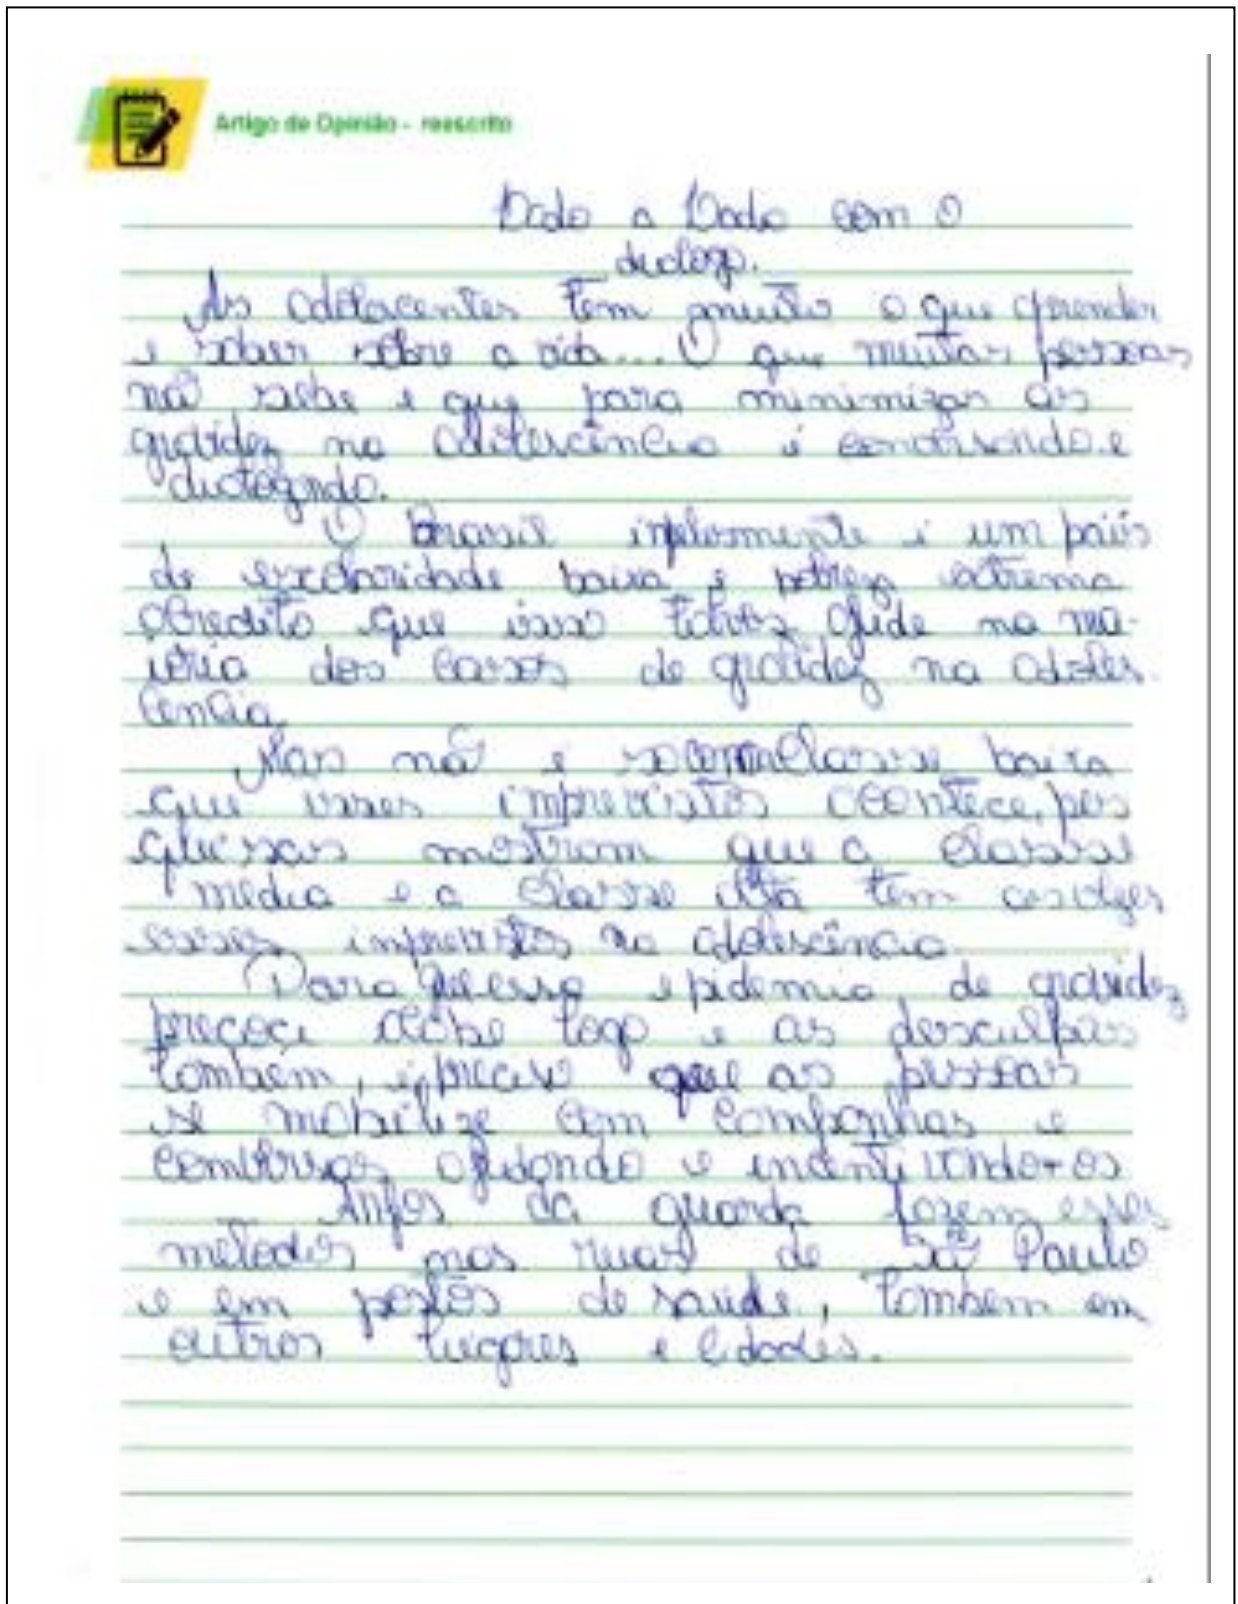 Artigo de Opinião - reescrito
Lado a Lado com o
dialogo.
As adolacentes tem muito o que aprender
e saber sobre a vida... O que muitas pessoas
não sabe e que para minimizar as
gravidez na adolescência é conversando e
dialogando.
O Brasil infelismente é um país
de escolaridade baixa e pobreza extrema
acredito que isso talvez ajude na ma-
ioria dos casos de gravidez na adoles-
cencia.
Mas não é so com classe baixa
que esses imprevistos acontece, pes
quisas mostram que a classe
média e a classe alta tem as vezes
esses imprevistos na adolescência.
Para que essa epidemia de gravidez
precoce acabe logo e as desculpas
também, é preciso que as pessoas
se mobilize com campanhas e
conversas ajudando e incentivando-os
Anjos da guarda fazem esses
metodos nas ruas de São Paulo
e em postos de saúde, também em
outros lugares e cidades.